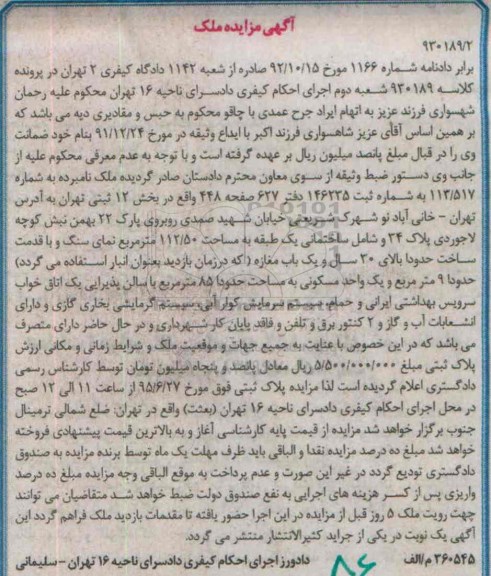 آگهی مزایده ملک
۹۳۰۱۸۹/۲
برابر دادنامه شماره ۱۱۶۶ مورخ ۹۲/۱۰/۱۵ صادره از شعبه ۱۱۴۲ دادگاه کیفری ۲ تهران در پرونده
کلاسه ۹۳۰۱۸۹ شعبه دوم اجرای احکام کیفری دادسرای ناحیه ۱۶ تهران محکوم علیه رحمان
شهسواری فرزند عزیز به اتهام ایراد جرح عمدی با چاقو محکوم به حبس و مقادیری دیه می باشد که
بر همین اساس آقای عزیز شاهسواری فرزند اکبر با ایداع وثیقه در مورخ ۹۱/۱۲/۲۴ بنام خود ضمانت
وی را در قبال مبلغ پانصد میلیون ریال بر عهده گرفته است و با توجه به عدم معرفی محکوم علیه از
جانب وی دستور ضبط وثیقه از سوی معاون محترم دادستان صادر گردیده ملک نامبرده به شماره
۱۱۳/۵۱۷ به شماره ثبت ۱۴۶۲۳۵ دفتر ۶۲۷ صفحه ۴۴۸ واقع در بخش ۱۲ ثبتی تهران به آدرس
تهران - خانی آباد نو شهرک شریعتی خیابان شهید صمدی روبروی پارک ۲۲ بهمن نبش کوچه
لاجوردی پلاک ۳۴ و شامل ساختمانی یک طبقه به مساحت ۱۱۲/۵۰ مترمربع نمای سنگ و با قدمت
ساخت حدودا بالای ۳۰ سال و یک باب مغازه (که درزمان بازدید بعنوان انبار استفاده می گردد)
حدودا ۹ متر مربع و یک واحد مسکونی به مساحت حدودا ۸۵ مترمربع با سالن پذیرایی یک اتاق خواب
سرویس بهداشتی ایرانی و حمام، سیستم سرمایش کولر آبی، سیستم گرمایشی بخاری گازی و دارای
انشعابات آب و گاز و ۲ کنتور برق و تلفن و فاقد پایان کار شهرداری و در حال حاضر دارای متصرف
می باشد که در این خصوص با عنایت به جمیع جهات و موقعیت ملک و شرایط زمانی و مکانی ارزش
پلاک ثبتی مبلغ ۵/۵۰۰/۰۰۰/۰۰۰ ریال معادل پانصد و پنجاه میلیون تومان توسط کارشناس رسمی
دادگستری اعلام گردیده است لذا مزایده پلاک ثبتی فوق مورخ ۹۵/۶/۲۷ از ساعت ۱۱ الی ۱۲ صبح
در محل اجرای احکام کیفری دادسرای ناحیه ۱۶ تهران (بعثت) واقع در تهران: ضلع شمالی ترمینال
جنوب برگزار خواهد شد مزایده از قیمت پایه کارشناسی آغاز و به بالاترین قیمت پیشنهادی فروخته
خواهد شد مبلغ ده درصد مزایده نقدا و الباقی باید ظرف مهلت یک ماه توسط برنده مزایده به صندوق
دادگستری تودیع گردد در غیر این صورت و عدم پرداخت به موقع الباقی وجه مزایده مبلغ ده درصد
واریزی پس از کسر هزینه های اجرایی به نفع صندوق دولت ضبط خواهد شد متقاضیان می توانند
جهت رویت ملک ۵ روز قبل از مزایده در این اجرا حضور یافته تا مقدمات بازدید ملک فراهم گردد این
آگهی یک نوبت در یکی از جراید کثیرالانتشار منتشر می گردد.
۳۶۰۵۴۵ م/الف
دادورز اجرای احکام کیفری دادسرای ناحیه ۱۶ تهران - سلیمانی